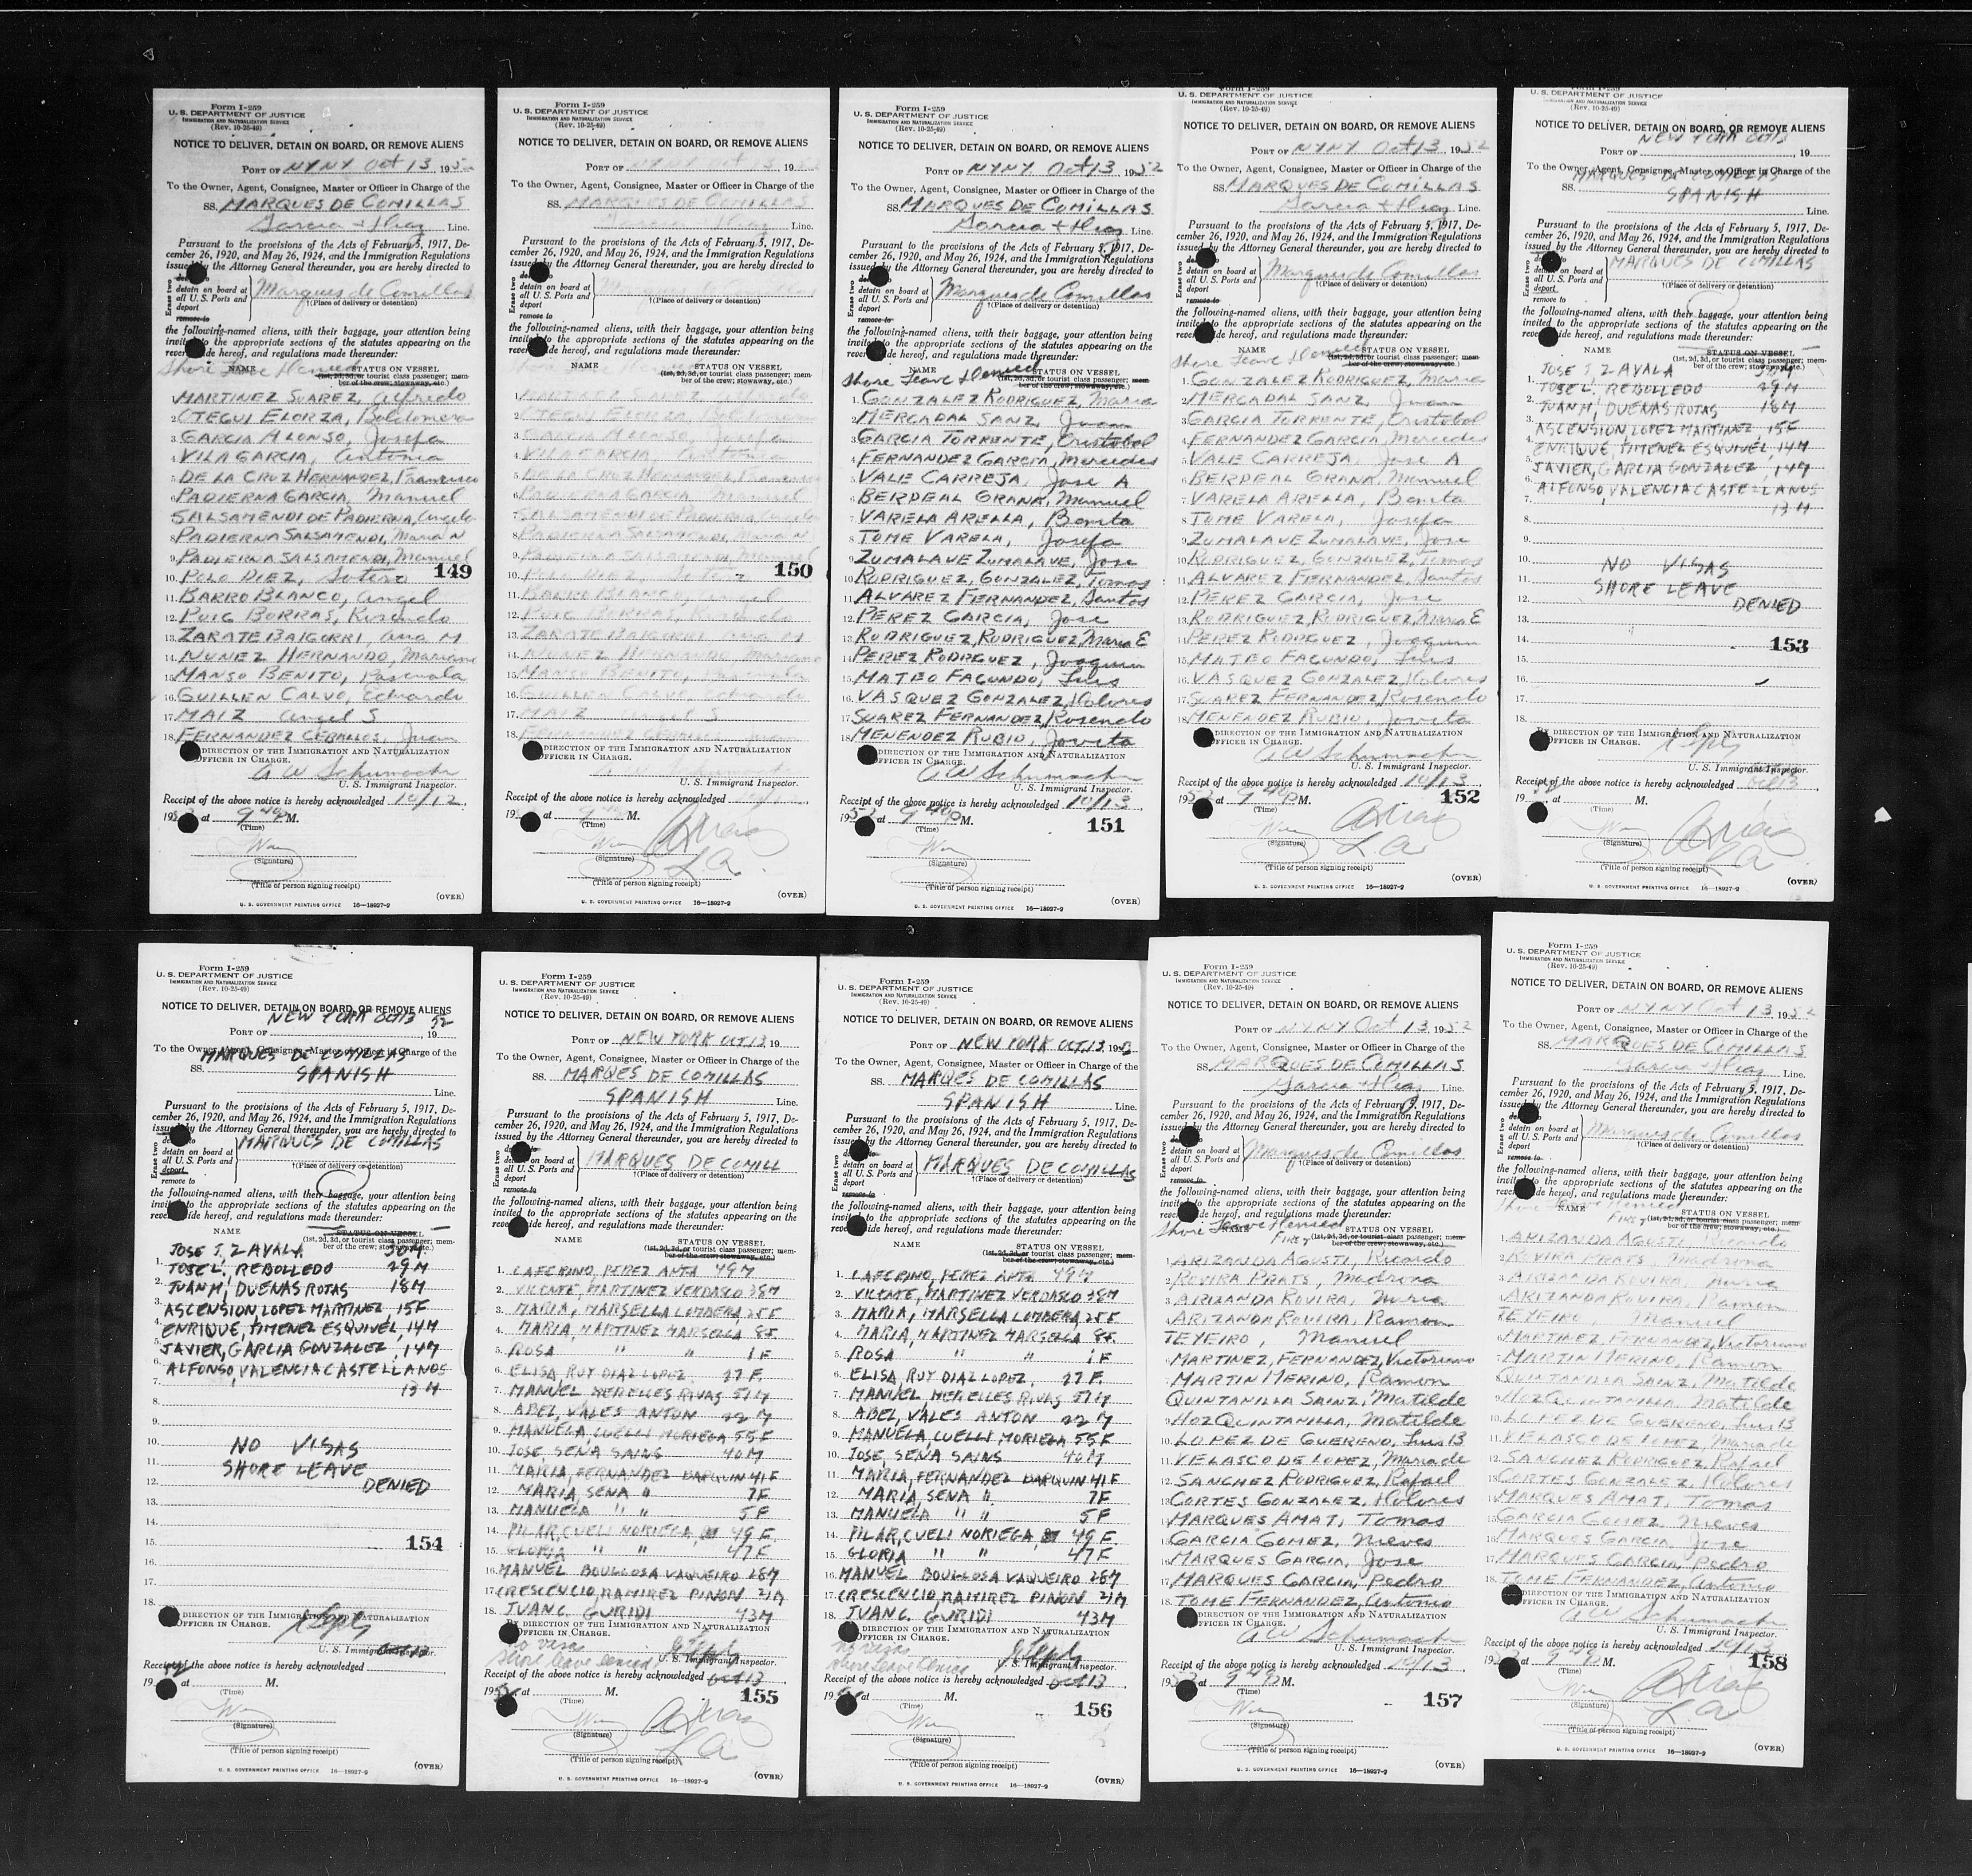 Form I-259
U. S. DEPARTMENT OF JUSTICE
IMMIGRATION AND NATURALIZATION SERVICE
(Rev. 10-25-49)
NOTICE TO DELIVER, DETAIN ON BOARD, OR REMOVE ALIENS
PORT OF NYNY Oct 13, 195
To the Owner, Agent, Consignee, Master or Officer in Charge of the
SS. MARQUES DE COMILLAS
Garcia + Diaz Line.
Pursuant to the provisions of the Acts of February 5, 1917, De-
cember 26, 1920, and May 26, 1924, and the Immigration Regulations
issued by the Attorney General thereunder, you are hereby directed to
Erase two
detain on board at
all U. S. Ports and
deport
remove to
Marques de Comillas
†(Place of delivery or detention)
the following-named aliens, with their baggage, your attention being
invited to the appropriate sections of the statutes appearing on the
reverse side hereof, and regulations made thereunder:
Shore Leave Denied
STATUS ON VESSEL
(1st, 2d, 3d, or tourist class passenger; mem-
ber of the crew; stowaway, etc.)
MARTINEZ SUAREZ, Alfredo
2. OTEGUI ELORZA, Baldomera
3. GARCIA ALONSO, Josefa
4. VILA GARCIA, Antonia
5. DE LA CRUZ HERNANDEZ, Francisco
6. PADIERNA GARCIA, Manuel
SALSAMENDI DE PADIERNA, Angela
8. PADIERNA SALSAMENDI, Maria N
9. PADIERNA SALSAMENDI, Manuel
10. POLO DIEZ, Sotero 149
11. BARRO BLANCO, Angel
12. PUIG BORRAS, Rosendo
13. ZARATE BAIGORRI, Ana M
14. NUNEZ HERNANDO, Mariano
15. MANSO BENITO, Pascuala
16. GUILLEN CALVO, Eduardo
17. MAIZ Angel S
18. FERNANDEZ CEBALLOS, Juan
BY DIRECTION OF THE IMMIGRATION AND NATURALIZATION
OFFICER IN CHARGE.
A W Schumacher
U. S. Immigrant Inspector.
Receipt of the above notice is hereby acknowledged 10/12
195 at 9 40 P M.
(Time)
(Signature)
(Title of person signing receipt)
(OVER)
U. S. GOVERNMENT PRINTING OFFICE 16—18927-9
Form I-259
U. S. DEPARTMENT OF JUSTICE
IMMIGRATION AND NATURALIZATION SERVICE
(Rev. 10-25-49)
NOTICE TO DELIVER, DETAIN ON BOARD, OR REMOVE ALIENS
PORT OF NYNY 13, 1952
To the Owner, Agent, Consignee, Master or Officer in Charge of the
SS. MARQUES DE COMILLAS
Garcia + Diaz Line.
Pursuant to the provisions of the Acts of February 5, 1917, De-
cember 26, 1920, and May 26, 1924, and the Immigration Regulations
issued by the Attorney General thereunder, you are hereby directed to
Erase two
detain on board at
all U. S. Ports and
deport
remove to
†(Place of delivery or detention)
the following-named aliens, with their baggage, your attention being
invited to the appropriate sections of the statutes appearing on the
reverse side hereof, and regulations made thereunder:
NAME STATUS ON VESSEL
(1st, 2d, 3d, or tourist class passenger; mem-
ber of the crew; stowaway, etc.)
1. MARTINEZ SUAREZ, Alfredo
2. OTEGUI ELORZA, Baldomera
3. GARCIA ALONSO, Josefa
4. VILA GARCIA, Antonia
5. DE LA CRUZ HERNANDEZ, Francisco
6. PADIERNA GARCIA, Manuel
7. SALSAMENDI DE PADIERNA, Angela
8. PADIERNA SALSAMENDI, Maria N
9. PADIERNA SALSAMENDI, Manuel
10. POLO DIEZ, Sotero 150
11. BARRO BLANCO, Angel
12. PUIG BORRAS, Rosendo
13. ZARATE BAIGORRI, Ana M
14. NUNEZ HERNANDO, Mariano
15. MANSO BENITO, Pascuala
16. GUILLEN CALVO, Eduardo
17. MAIZ Angel S
18. FERNANDEZ CEBALLOS, Juan
BY DIRECTION OF THE IMMIGRATION AND NATURALIZATION
OFFICER IN CHARGE.
U. S. Immigrant Inspector.
Receipt of the above notice is hereby acknowledged
19 at M.
(Time)
(Signature)
(Title of person signing receipt)
(OVER)
U. S. GOVERNMENT PRINTING OFFICE 16—18927-9
Form I-259
U. S. DEPARTMENT OF JUSTICE
IMMIGRATION AND NATURALIZATION SERVICE
(Rev. 10-25-49)
NOTICE TO DELIVER, DETAIN ON BOARD, OR REMOVE ALIENS
PORT OF NYNY Oct 13, 1952
To the Owner, Agent, Consignee, Master or Officer in Charge of the
SS. MARQUES DE COMILLAS
Garcia + Diaz Line.
Pursuant to the provisions of the Acts of February 5, 1917, De-
cember 26, 1920, and May 26, 1924, and the Immigration Regulations
issued by the Attorney General thereunder, you are hereby directed to
Erase two
detain on board at
all U. S. Ports and
deport
remove to
Marques de Comillas
†(Place of delivery or detention)
the following-named aliens, with their baggage, your attention being
invited to the appropriate sections of the statutes appearing on the
reverse side hereof, and regulations made thereunder:
NAME STATUS ON VESSEL
Shore Leave Denied
(1st, 2d, 3d, or tourist class passenger; mem-
ber of the crew; stowaway, etc.)
1. GONZALEZ RODRIGUEZ, Maria
2. MERCADAL SANZ, Juan
3. GARCIA TORRENTE, Cristobal
4. FERNANDEZ GARCIA, Mercedes
5. VALE CARREJA, Jose A
6. BERDEAL GRANA, Manuel
7. VARELA ARELLA, Benita
8. TOME VARELA, Josefa
ZUMALAVE ZUMALAVE, Jose
10. RODRIGUEZ, GONZALEZ, Tomas
11. ALVAREZ FERNANDEZ, Santos
12. PEREZ GARCIA, Jose
13. RODRIGUEZ, RODRIGUEZ, Maria E
14. PEREZ RODRGUEZ, Joaquin
15. MATEO FACUNDO, Luis
16. VASQUEZ GONZALEZ, Dolores
17. SUAREZ FERNANDEZ, Rosendo
18. MENENDEZ RUBIO, Jovita
BY DIRECTION OF THE IMMIGRATION AND NATURALIZATION
OFFICER IN CHARGE.
A W Schumacher
U. S. Immigrant Inspector.
Receipt of the above notice is hereby acknowledged 10/13
195 at 9 40 P M.
(Time) 151
(Signature)
(Title of person signing receipt)
(OVER)
U. S. GOVERNMENT PRINTING OFFICE 16—18927-9
Form I-259
U. S. DEPARTMENT OF JUSTICE
IMMIGRATION AND NATURALIZATION SERVICE
(Rev. 10-25-49)
NOTICE TO DELIVER, DETAIN ON BOARD, OR REMOVE ALIENS
PORT OF NYNY Oct 13, 1952
To the Owner, Agent, Consignee, Master or Officer in Charge of the
SS. MARQUES DE COMILLAS
Garcia + Diaz Line.
Pursuant to the provisions of the Acts of February 5, 1917, De-
cember 26, 1920, and May 26, 1924, and the Immigration Regulations
issued by the Attorney General thereunder, you are hereby directed to
Erase two
detain on board at
all U. S. Ports and
deport
remove to
Marques de Comillas
†(Place of delivery or detention)
the following-named aliens, with their baggage, your attention being
invited to the appropriate sections of the statutes appearing on the
reverse side hereof, and regulations made thereunder:
NAME STATUS ON VESSEL
Shore Leave Denied
(1st, 2d, 3d, or tourist class passenger; mem-
ber of the crew; stowaway, etc.)
1. GONZALEZ RODRIGUEZ, Maria
2. MERCADAL SANZ, Juan
GARCIA TORRENTE, Cristobal
4. FERNANDEZ GARCIA, Mercedes
5. VALE CARREJA, Jose A
6. BERDEAL GRANA, Manuel
7. VARELA ARELLA, Benita
8. TOME VARELA, Josefa
9. ZUMALAVE ZUMALAVE, Jose
10. RODRIGUEZ, GONZALEZ, Tomas
11. ALVAREZ FERNANDEZ, Santos
12. PEREZ GARCIA, Jose
13. RODRIGUEZ, RODRIGUEZ, Maria E
14. PEREZ RIDRGUEZ, Joaquin
15. MATEO FACUNDO, Luis
16. VASQUEZ GONZALEZ, Dolores
17. SUAREZ FERNANDEZ, Rosendo
18. MENENDEZ RUBIO, Jovita
BY DIRECTION OF THE IMMIGRATION AND NATURALIZATION
OFFICER IN CHARGE.
A W Schumacher
U. S. Immigrant Inspector.
Receipt of the above notice is hereby acknowledged 10/13
195 at 9 40 P M. 152
(Time)
(Signature)
(Title of person signing receipt)
(OVER)
U. S. GOVERNMENT PRINTING OFFICE 16—18927-9
Form I-259
U. S. DEPARTMENT OF JUSTICE
IMMIGRATION AND NATURALIZATION SERVICE
(Rev. 10-25-49)
NOTICE TO DELIVER, DETAIN ON BOARD, OR REMOVE ALIENS
NEW YORK OCT13
PORT OF , 19
To the Owner, Agent, Consignee, Master or Officer in Charge of the
MARQUES DE COMILLAS
SS. SPANISH
Line.
Pursuant to the provisions of the Acts of February 5, 1917, De-
cember 26, 1920, and May 26, 1924, and the Immigration Regulations
issued by the Attorney General thereunder, you are hereby directed to
Erase two
detain on board at
all U. S. Ports and
deport
remove to
MARQUES DE COMILLAS
†(Place of delivery or detention)
the following-named aliens, with their baggage, your attention being
invited to the appropriate sections of the statutes appearing on the
reverse side hereof, and regulations made thereunder:
NAME STATUS ON VESSEL
(1st, 2d, 3d, or tourist class passenger; mem-
ber of the crew; stowaway, etc.)
JOSE J. ZAVALA 30M
1. JOSE L. REBOLLEDO 29M
2. JUAN M, DUENAS ROTAS 18M
3. ASCENSION LOPEZ MARTINEZ 15F
4. ENRIQUE, JIMENEZ ESQUIVEL, 14M
5. JAVIER, GARCIA GONZALEZ, 14M
6. ALFONSO, VALENCIA CASTELLANOS
7. 13 M
8.
9.
10. NO VISAS
11. SHORE LEAVE
12. DENIED
13.
14. 153
15.
16.
17.
18.
BY DIRECTION OF THE IMMIGRATION AND NATURALIZATION
OFFICER IN CHARGE.
U. S. Immigrant Inspector.
Receipt of the above notice is hereby acknowledged Oct 13
19 at M.
(Time)
(Signature)
(Title of person signing receipt)
(OVER)
U. S. GOVERNMENT PRINTING OFFICE 16—18927-9
Form I-259
U. S. DEPARTMENT OF JUSTICE
IMMIGRATION AND NATURALIZATION SERVICE
(Rev. 10-25-49)
NOTICE TO DELIVER, DETAIN ON BOARD, OR REMOVE ALIENS
NEW YORK OCT13 52
PORT OF , 19
To the Owner, Agent, Consignee, Master or Officer in Charge of the
MARQUES DE COMILLAS
SS. SPANISH
Line.
Pursuant to the provisions of the Acts of February 5, 1917, De-
cember 26, 1920, and May 26, 1924, and the Immigration Regulations
issued by the Attorney General thereunder, you are hereby directed to
Erase two
detain on board at
all U. S. Ports and
deport
remove to
MARQUES DE COMILLAS
†(Place of delivery or detention)
the following-named aliens, with their baggage, your attention being
invited to the appropriate sections of the statutes appearing on the
reverse side hereof, and regulations made thereunder:
NAME STATUS ON VESSEL
(1st, 2d, 3d, or tourist class passenger; mem-
ber of the crew; stowaway, etc.)
JOSE J. ZAVALA 30M
1. JOSE L. REBOLLEDO 29M
2. JUAN M, DUENAS ROTAS 18M
3. ASCENSION LOPEZ MARTINEZ 15F
4. ENRIQUE, JIMENEZ ESQUIVEL, 14M
5. JAVIER, GARCIA GONZALEZ, 14M
6. ALFONSO, VALENCIA CASTELLANOS
7. 13 M
8.
9.
10. NO VISAS
11. SHORE LEAVE
12. DENIED
13.
14.
15. 154
16.
17.
18.
BY DIRECTION OF THE IMMIGRATION AND NATURALIZATION
OFFICER IN CHARGE.
U. S. Immigrant Inspector.
Receipt of the above notice is hereby acknowledged
19 at M.
(Time)
(Signature)
(Title of person signing receipt)
(OVER)
U. S. GOVERNMENT PRINTING OFFICE 16—18927-9
Form I-259
U. S. DEPARTMENT OF JUSTICE
IMMIGRATION AND NATURALIZATION SERVICE
(Rev. 10-25-49)
NOTICE TO DELIVER, DETAIN ON BOARD, OR REMOVE ALIENS
PORT OF NEW YORK OCT.13, 19
To the Owner, Agent, Consignee, Master or Officer in Charge of the
SS. MARQES DE COMILLAS
SPANISH Line.
Pursuant to the provisions of the Acts of February 5, 1917, De-
cember 26, 1920, and May 26, 1924, and the Immigration Regulations
issued by the Attorney General thereunder, you are hereby directed to
Erase two
detain on board at
all U. S. Ports and
deport
remove to
MARQUES DE COMILL
†(Place of delivery or detention)
the following-named aliens, with their baggage, your attention being
invited to the appropriate sections of the statutes appearing on the
reverse side hereof, and regulations made thereunder:
NAME STATUS ON VESSEL
(1st, 2d, 3d, or tourist class passenger; mem-
ber of the crew; stowaway, etc.)
1. CAFERINO, PEREZ ANTA 49M
2. VICENTE, MARTINEZ VERDASCO 38M
3. MARIA, MARSELLA LOMBERA, 25F
4. MARIA, MARTINEZ MARSELLA 8F
5. ROSA " " 1F
6. ELISA, RUY DIAZ LOPEZ, 27F
7. MANUEL MERELLES RIVAS 51M
8. ABEL, VALES ANTON 22M
9. MANUELA CUELLI MORIEGA 55F
10. JOSE, SENA SAINS 40M
11. MARIA, FERNANDEZ BARQUIN 41F
12. MARIA, SENA " 7F
13. MANUELA " " 5F
14. PILAR, CUELI NORIEGA, 49F
15. GLORIA " " 47F
16. MANUEL BOULLOSA VAQUEIRO 28M
17. CRESCENCIO, RAMIREZ PINON 21M
18. JUAN C. GURIDI 43M
BY DIRECTION OF THE IMMIGRATION AND NATURALIZATION
OFFICER IN CHARGE.
no visas
shore leave denied
U. S. Immigrant Inspector.
Receipt of the above notice is hereby acknowledged Oct 13
195 at M. 155
(Time)
(Signature)
(Title of person signing receipt)
(OVER)
U. S. GOVERNMENT PRINTING OFFICE 16—18927-9
Form I-259
U. S. DEPARTMENT OF JUSTICE
IMMIGRATION AND NATURALIZATION SERVICE
(Rev. 10-25-49)
NOTICE TO DELIVER, DETAIN ON BOARD, OR REMOVE ALIENS
PORT OF NEW YORK OCT.13, 1952
To the Owner, Agent, Consignee, Master or Officer in Charge of the
SS. MARQES DE COMILLAS
SPANISH Line.
Pursuant to the provisions of the Acts of February 5, 1917, De-
cember 26, 1920, and May 26, 1924, and the Immigration Regulations
issued by the Attorney General thereunder, you are hereby directed to
Erase two
detain on board at
all U. S. Ports and
deport
remove to
MARQUES DE COMILLAS
†(Place of delivery or detention)
the following-named aliens, with their baggage, your attention being
invited to the appropriate sections of the statutes appearing on the
reverse side hereof, and regulations made thereunder:
NAME STATUS ON VESSEL
(1st, 2d, 3d, or tourist class passenger; mem-
ber of the crew; stowaway, etc.)
1. CAFERINO, PEREZ ANTA 49M
2. VICENTE, MARTINEZ VERDASCO 38M
3. MARIA, MARSELLA LOMBERA, 25F
4. MARIA, MARTINEZ MARSELLA 8F
5. ROSA " " 1F
6. ELISA, RUY DIAZ LOPEZ, 27F
7. MANUEL MERELLES RIVAS 51M
8. ABEL, VALES ANTON 22M
9. MANUELA CUELLI MORIEGA 55F
10. JOSE, SENA SAINS 40M
11. MARIA, FERNANDEZ BARQUIN 41F
12. MARIA, SENA " 7F
13. MANUELA " " 5F
14. PILAR, CUELI NORIEGA 49F
15. GLORIA " " 47F
16. MANUEL BOULLOSA VAQUEIRO 28M
17. CRESCENCIO, RAMIREZ PINON 21M
18. JUAN C. GURIDI 43M
BY DIRECTION OF THE IMMIGRATION AND NATURALIZATION
OFFICER IN CHARGE.
no visas
shore leave denied
U. S. Immigrant Inspector.
Receipt of the above notice is hereby acknowledged Oct 13
19 at M.
(Time) 156
(Signature)
(Title of person signing receipt)
(OVER)
U. S. GOVERNMENT PRINTING OFFICE 16—18927-9
Form I-259
U. S. DEPARTMENT OF JUSTICE
IMMIGRATION AND NATURALIZATION SERVICE
(Rev. 10-25-49)
NOTICE TO DELIVER, DETAIN ON BOARD, OR REMOVE ALIENS
PORT OF NYNY Oct 13, 1952
To the Owner, Agent, Consignee, Master or Officer in Charge of the
SS. MARQUES DE COMILLAS
Garcia + Diaz Line.
Pursuant to the provisions of the Acts of February 5, 1917, De-
cember 26, 1920, and May 26, 1924, and the Immigration Regulations
issued by the Attorney General thereunder, you are hereby directed to
Erase two
detain on board at
all U. S. Ports and
deport
remove to
Marques de Comillas
†(Place of delivery or detention)
the following-named aliens, with their baggage, your attention being
invited to the appropriate sections of the statutes appearing on the
reverse side hereof, and regulations made thereunder:
Shore Leave Denied STATUS ON VESSEL
First (1st, 2d, 3d, or tourist class passenger; mem-
ber of the crew; stowaway, etc.)
ARIZANDA AGUSTI, Ricardo
2. ROVIRA PRATS, Madrona
3. ARIZANDA ROVIRA, Nuria
4. ARIZANDA ROVIRA, Ramon
TEYEIRO, Manuel
6. MARTINEZ, FERNANDEZ, Victoriano
7. MARTIN MERINO, Ramon
QUINTANILLA SAINZ, Matilde
9. HOZ QUINTANILLA, Matilde
10. LOPEZ DE GUERENO, Luis B
11. VELASCO DE LOPEZ, Maria de
12. SANCHEZ RODRIGUEZ, Rafael
13. CORTES GONZALEZ, Dolores
14. MARQUES AMAT, Tomas
15. GARCIA GOMEZ, Nieves
16. MARQUES GARCIA, Jose
17. MARQUES GARCIA, Pedro
18. TOME FERNANDEZ, Antonio
BY DIRECTION OF THE IMMIGRATION AND NATURALIZATION
OFFICER IN CHARGE.
A W Schumacher
U. S. Immigrant Inspector.
Receipt of the above notice is hereby acknowledged 10/13
195 at 9 40 P M.
(Time) 157
(Signature)
(Title of person signing receipt)
(OVER)
U. S. GOVERNMENT PRINTING OFFICE 16—18927-9
Form I-259
U. S. DEPARTMENT OF JUSTICE
IMMIGRATION AND NATURALIZATION SERVICE
(Rev. 10-25-49)
NOTICE TO DELIVER, DETAIN ON BOARD, OR REMOVE ALIENS
PORT OF NYNY Oct 13, 1952
To the Owner, Agent, Consignee, Master or Officer in Charge of the
SS. MARQUES DE COMILLAS
Garcia + Diaz Line.
Pursuant to the provisions of the Acts of February 5, 1917, De-
cember 26, 1920, and May 26, 1924, and the Immigration Regulations
issued by the Attorney General thereunder, you are hereby directed to
Erase two
detain on board at
all U. S. Ports and
deport
remove to
Marques de Comillas
†(Place of delivery or detention)
the following-named aliens, with their baggage, your attention being
invited to the appropriate sections of the statutes appearing on the
reverse side hereof, and regulations made thereunder:
Shore Leave Denied
NAME STATUS ON VESSEL
First (1st, 2d, 3d, or tourist class passenger; mem-
ber of the crew; stowaway, etc.)
1. ARIZANDA AGUSTI, Ricardo
ROVIRA PRATS, Madrona
3. ARIZANDA ROVIRA, Nuria
ARIZANDA ROVIRA, Ramon
TEYEIRO, Manuel
MARTINEZ, FERNANDEZ, Victoriano
7. MARTIN MERINO, Ramon
QUINTANILLA SAINZ, Matilde
9. HOZ QUINTANILLA, Matilde
10. LOPEZ DE GUERENO, Luis B
11. VELASCO DE LOPEZ, Maria de
12. SANCHEZ RODRIGUEZ, Rafael
13. CORTES GONZALEZ, Dolores
14. MARQUES AMAT, Tomas
15. GARCIA GOMEZ, Nieves
16. MARQUES GARCIA, Jose
17. MARQUES GARCIA, Pedro
18. TOME FERNANDEZ, Antonio
BY DIRECTION OF THE IMMIGRATION AND NATURALIZATION
OFFICER IN CHARGE.
A W Schumacher
U. S. Immigrant Inspector.
Receipt of the above notice is hereby acknowledged 10/13
19 at 9 40 P M. 158
(Time)
(Signature)
(Title of person signing receipt)
(OVER)
U. S. GOVERNMENT PRINTING OFFICE 16—18927-9